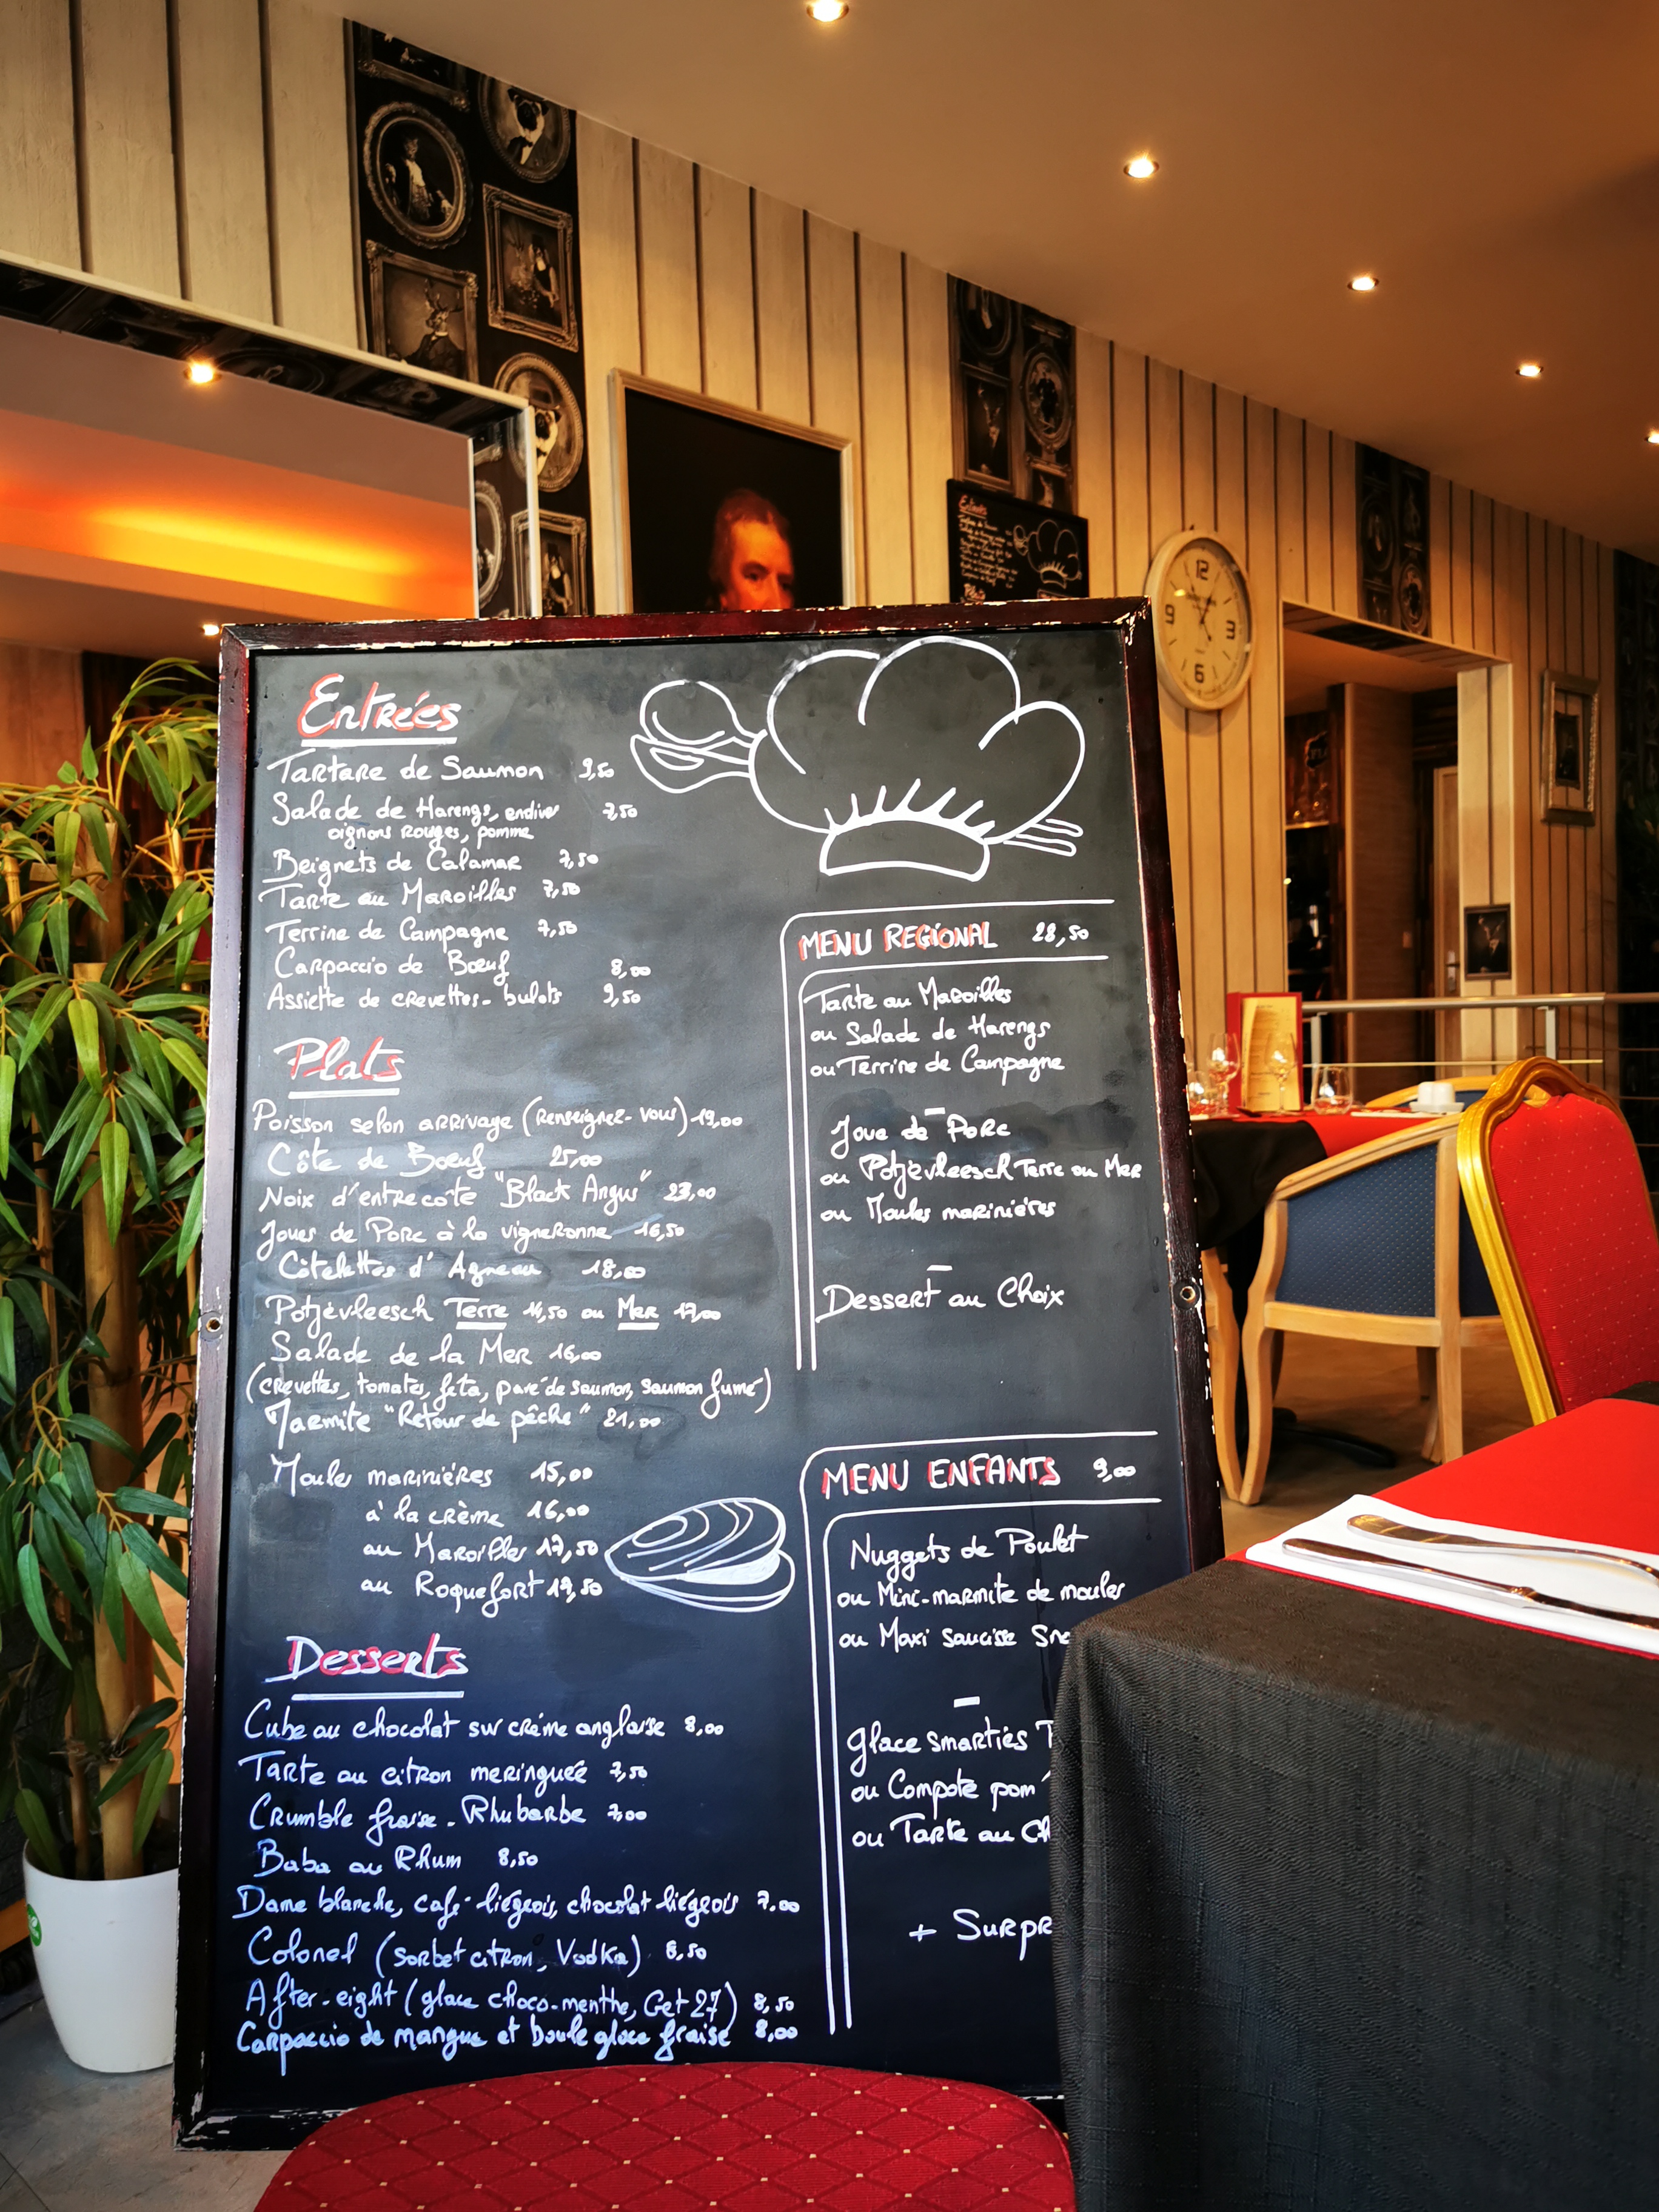 Entrées
Tartare de Saumon 9,50
Salade de Harengs, endive 7,50
oignons rouges, pomme
Beignets de Calamar 7,50
Tarte au Maroilles 7,50
Terrine de Campagne 7,50
Carpaccio de Boeuf 8,00
Assiette de crevettes- bulots 9,50
Plats
Poisson selon arrivage (Renseignez-vous) 19,00
Côte de Boeuf 25,00
Noix d'entrecôte "Black Angus" 23,00
Joues de Porc à la vigneronne 16,50
Côtelettes d'Agneau 18,00
Potjevleesch Terre 14,50 ou Mer 17,00
Salade de la Mer 16,00
(crevettes, tomates, feta, pavé de saumon, saumon fumé)
Marmite "Retour de pêche" 21,00
Moules marinières 15,00
à la crème 16,00
au Maroilles 17,50
au Roquefort 17,50
Desserts
Cube au chocolat sur crème anglaise 8,00
Tarte au citron meringuée 7,50
Crumble fraise-Rhubarbe 7,00
Baba au Rhum 8,50
Dame blanche, café liégeois, chocolat liégeois 7.00
Colonel (sorbet citron, Vodka) 8,50
After-eight (glace choco-menthe, Get 27) 8,50
Carpaccio de mangue et boule glace fraise 8,00
MENU REGIONAL 28,50
Tarte au Maroilles
ou Salade de Harengs
ou Terrine de Campagne
Joue de Porc
ou Potjevleesch Terre ou Mer
ou Moules marinières
Dessert au Choix
MENU ENFANTS 9,00
Nuggets de Poulet
ou Mini-marmite de moules
ou Maxi saucisse
Glace smarties
ou Compote pom
ou Tarte au Ch
+ Surpr
Entrées
12
3
6
9